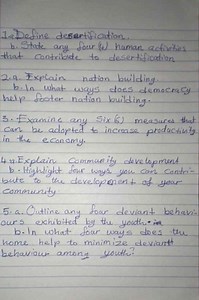 1.a Define desertification.
b. State any four (4) human activities
that contribute to desertification
2.a. Explain nation building.
b. In what ways does democracy
help foster nation building.
3. Examine any Six (6) measures that
can be adopted to increase productivity
in the economy.
4.a Explain Community development
b. Highlight four ways you can contri-
bute to the development of your
community.
5. a. Outline any four deviant behavi-
ours exhibited by the youth.
b. In what four ways does the
home help to minimize deviant
behaviour among youth?